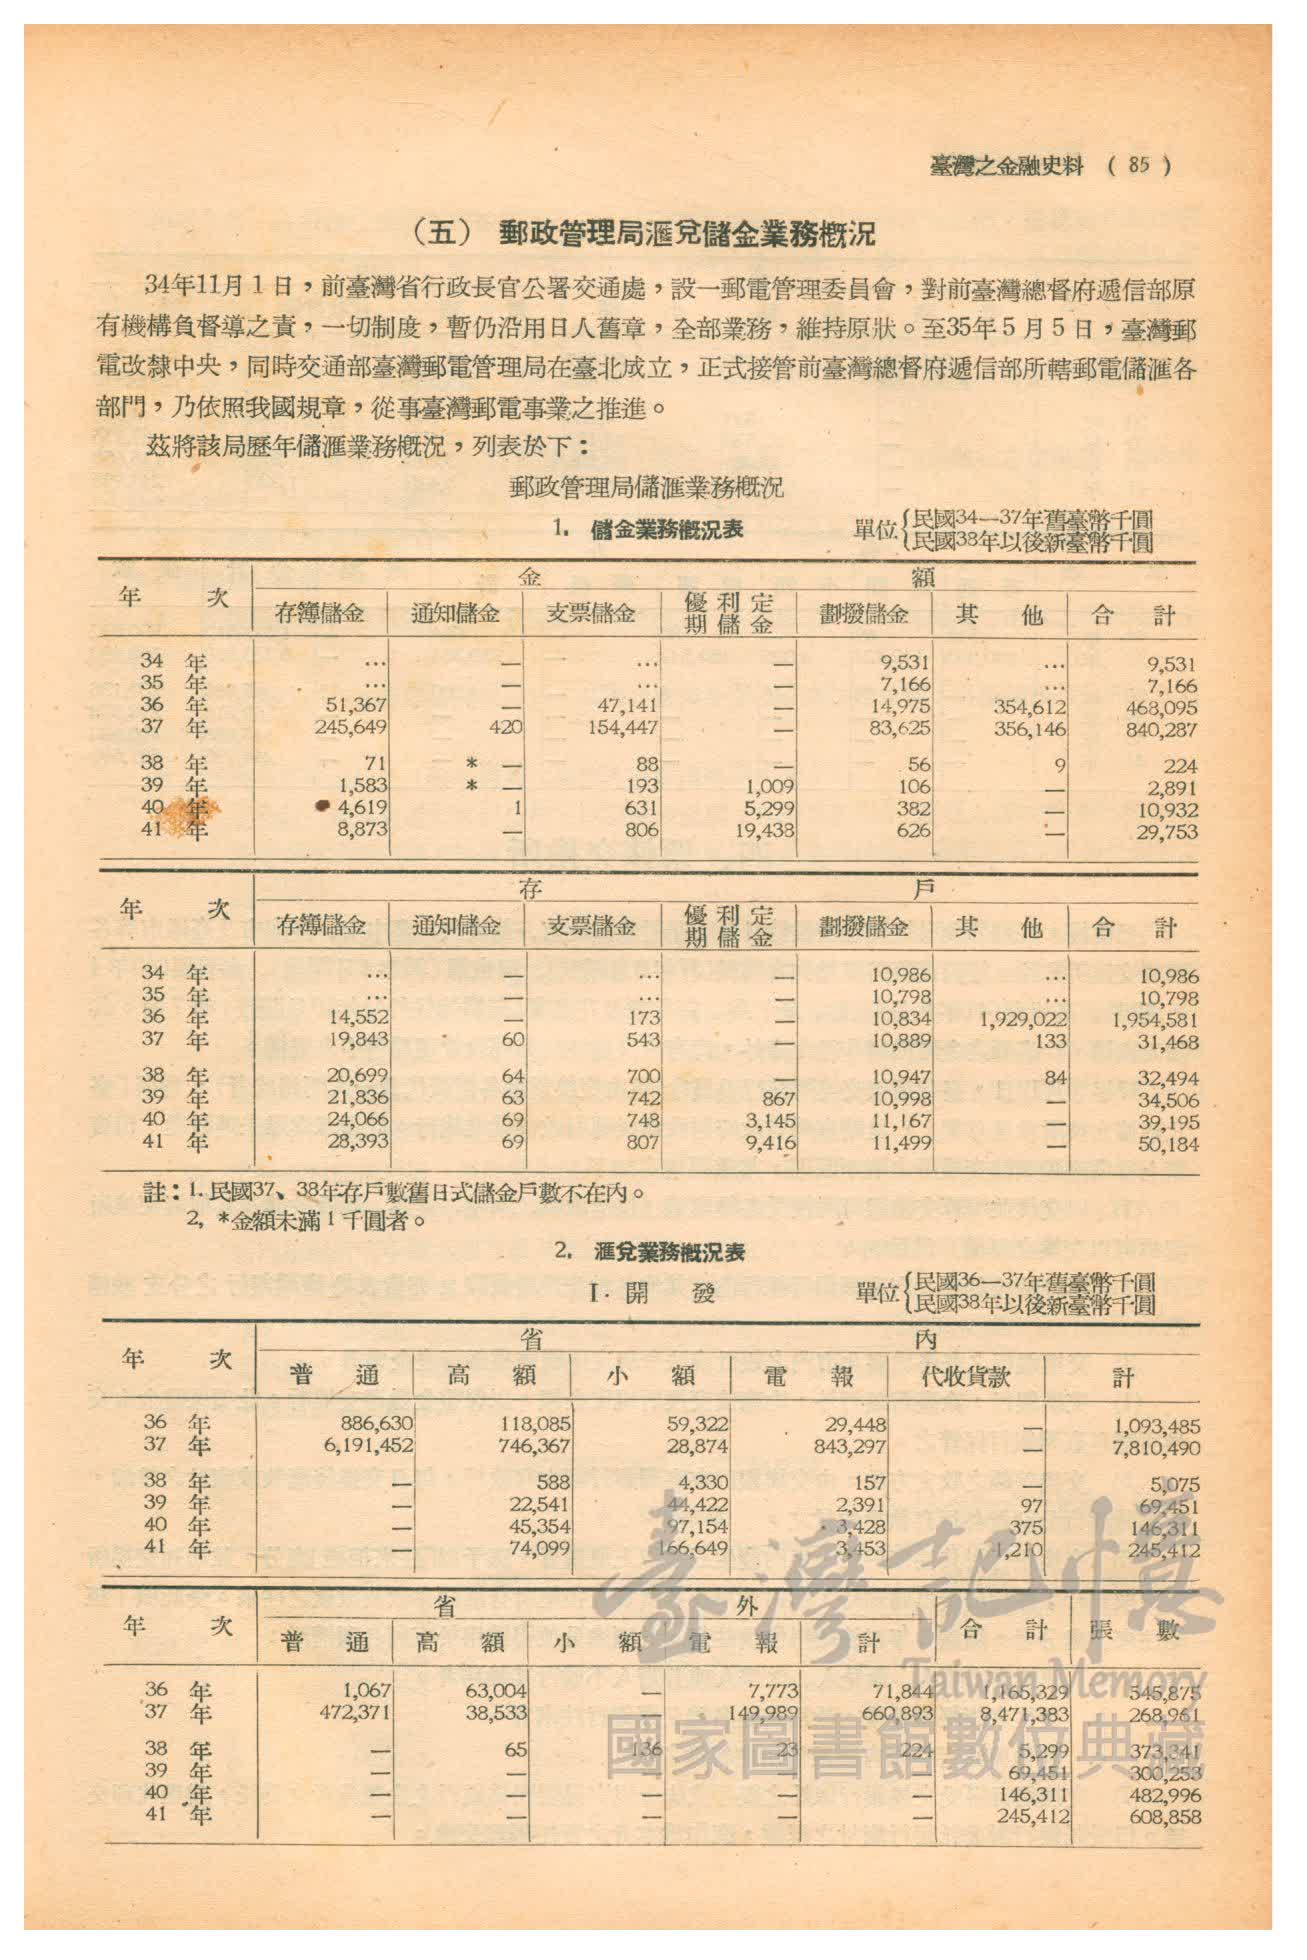 臺灣之金融史料 ( 85 )
(五) 郵政管理局滙兌儲金業務概況
34年11月1日，前臺灣省行政長官公署交通處，設一郵電管理委員會，對前臺灣總督府遞信部原
有機構負督導之責，一切制度，暫仍沿用日人舊章，全部業務，維持原狀。至35年5月5日，臺灣郵
電改隸中央，同時交通部臺灣郵電管理局在臺北成立，正式接管前臺灣總督府遞信部所轄郵電儲滙各
部門，乃依照我國規章，從事臺灣郵電事業之推進。
茲將該局歷年儲滙業務概況，列表於下：
郵政管理局儲滙業務概況
1. 儲金業務概況表
單位{民國34—37年舊臺幣千圓
{民國38年以後新臺幣千圓
年 次 金 額
存簿儲金 通知儲金 支票儲金 優利定期儲金 劃撥儲金 其他 合計
34 年 … — … — 9,531 … 9,531
35 年 … — … — 7,166 … 7,166
36 年 51,367 — 47,141 — 14,975 354,612 468,095
37 年 245,649 420 154,447 — 83,625 356,146 840,287
38 年 71 * — 88 — 56 9 224
39 年 1,583 * — 193 1,009 106 — 2,891
40 年 4,619 1 631 5,299 382 — 10,932
41 年 8,873 — 806 19,438 626 — 29,753
年 次 存 戶
存簿儲金 通知儲金 支票儲金 優利定期儲金 劃撥儲金 其他 合計
34 年 … — … — 10,986 … 10,986
35 年 … — … — 10,798 … 10,798
36 年 14,552 — 173 — 10,834 1,929,022 1,954,581
37 年 19,843 60 543 — 10,889 133 31,468
38 年 20,699 64 700 — 10,947 84 32,494
39 年 21,836 63 742 867 10,998 — 34,506
40 年 24,066 69 748 3,145 11,167 — 39,195
41 年 28,393 69 807 9,416 11,499 — 50,184
註：1. 民國37、38年存戶數舊日式儲金戶數不在內。
2, *金額未滿1千圓者。
2. 滙兌業務概況表
I. 開 發
單位{民國36—37年舊臺幣千圓
{民國38年以後新臺幣千圓
年 次 省 內
普通 高額 小額 電報 代收貨款 計
36 年 886,630 118,085 59,322 29,448 — 1,093,485
37 年 6,191,452 746,367 28,874 843,297 — 7,810,490
38 年 — 588 4,330 157 — 5,075
39 年 — 22,541 44,422 2,391 97 69,451
40 年 — 45,354 97,154 3,428 375 146,311
41 年 — 74,099 166,649 3,453 1,210 245,412
年 次 省 外 合計 張數
普通 高額 小額 電報 計
36 年 1,067 63,004 — 7,773 71,844 1,165,329 545,875
37 年 472,371 38,533 — 149,989 660,893 8,471,383 268,961
38 年 — 65 136 23 224 5,299 373,341
39 年 — — — — — 69,451 300,253
40 年 — — — — — 146,311 482,996
41 年 — — — — — 245,412 608,858
臺灣記憶
Taiwan Memory
國家圖書館數位典藏